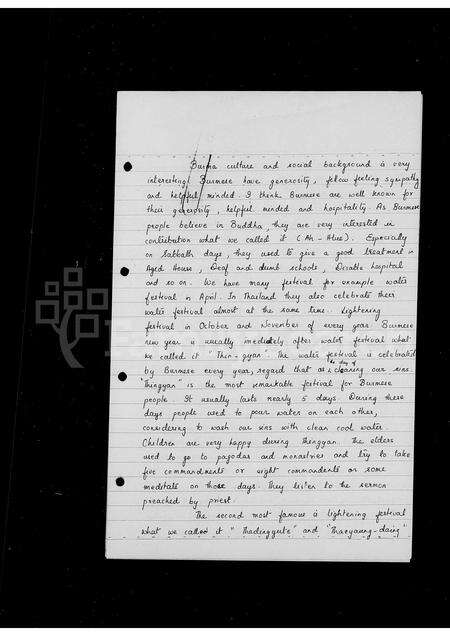 Burma culture and social background is very
interesting. Burmese have generosity, fellow feeling sympathy
and helpful minded. I think Burmese are well known for
their generosity, helpful minded and hospitality. As Burmese
people believe in Buddha, they are very interested in
contribution what we called it (Ah-Hlus). Especially
on Sabbath days, they used to give a good treatment in
Aged House, Deaf and dumb schools, Disable hospital
and so on. We have many festival for example water
festival in April. In Thailand they also celebrate their
water festival almost at the same time. Lightening
festival in October and November of every year. Burmese
new year is usually immediately after water festival what
we called it "Thin-gyan". The water festival is celebrated
by Burmese every year, regard that as the day of cleaning our sins.
"Thingyan" is the most remarkable festival for Burmese
people. It usually lasts nearly 5 days. During these
days people used to pour water on each other,
considering to wash our sins with clean cool water.
Children are very happy during Thingyan. The elders
used to go to pagodas and monastries and try to take
five commandments or eight commandents or some
meditate on those days. They listen to the sermon
preached by priest.
The second most famous is lightening festival
what we called it "Thadinggute" and "Thaezaung-daing"